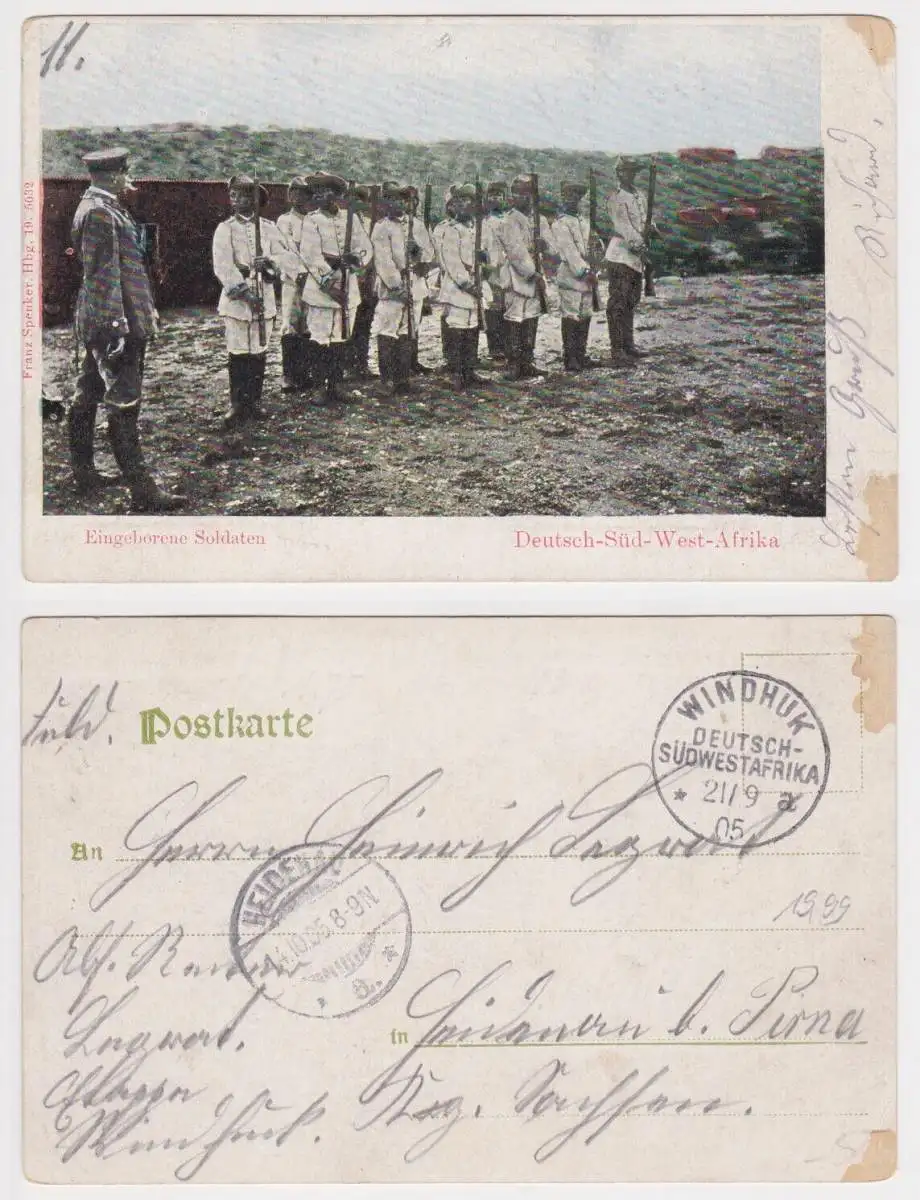 11.
Franz Spenker, Hbg. 19. 5032
Eingeborene Soldaten
Deutsch-Süd-West-Afrika
Gruß
Richard.
Postkarte
WINDHUK
DEUTSCH-
SÜDWESTAFRIKA
21/9 a
05
An Herrn Heinrich Legrat
HEIDENAU
14.10.05.8-9N
a.
19,99
Abs. Reiter
Legrat.
Etappe
Windhuk.
in Heidenau b. Pirna
Kgr. Sachsen.